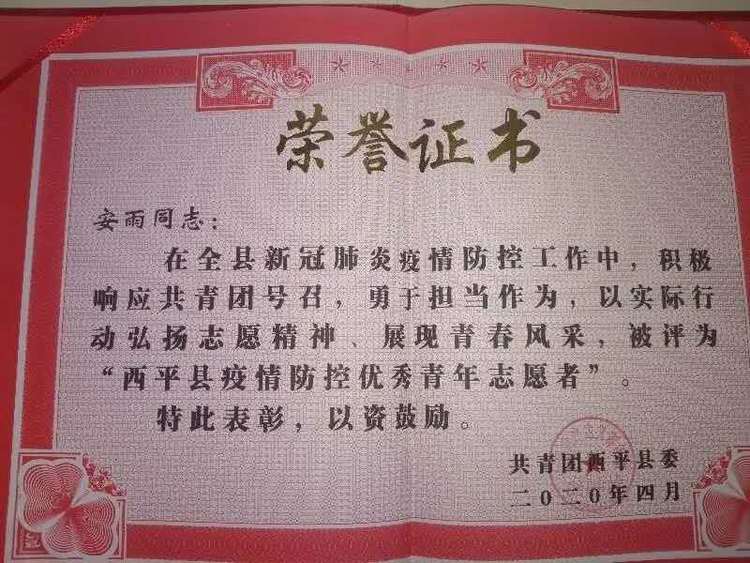 荣誉证书
安雨同志：
在全县新冠肺炎疫情防控工作中，积极
响应共青团号召，勇于担当作为，以实际行
动弘扬志愿精神、展现青春风采，被评为
“西平县疫情防控优秀青年志愿者”。
特此表彰，以资鼓励。
共青团西平县委
二〇二〇年四月